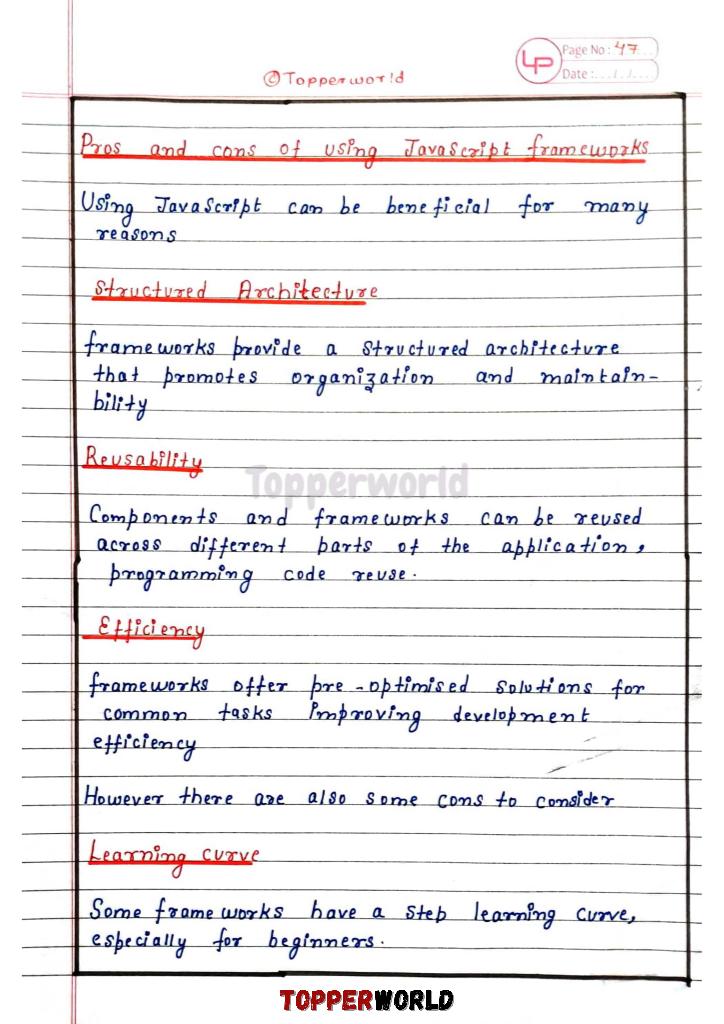 Page No: 47
Date:
LP
© Topperworld
Pros and cons of using JavaScript frameworks
Using JavaScript can be beneficial for many
reasons
Structured Architecture
frameworks provide a structured architecture
that promotes organization and maintain-
bility
Reusability
Topperworld
Components and frameworks can be reused
across different parts of the application,
programming code reuse.
Efficiency
frameworks offer pre-optimised solutions for
common tasks improving development
efficiency
However there are also some cons to consider
Learning curve
Some frameworks have a step learning curve,
especially for beginners.
TOPPERWORLD